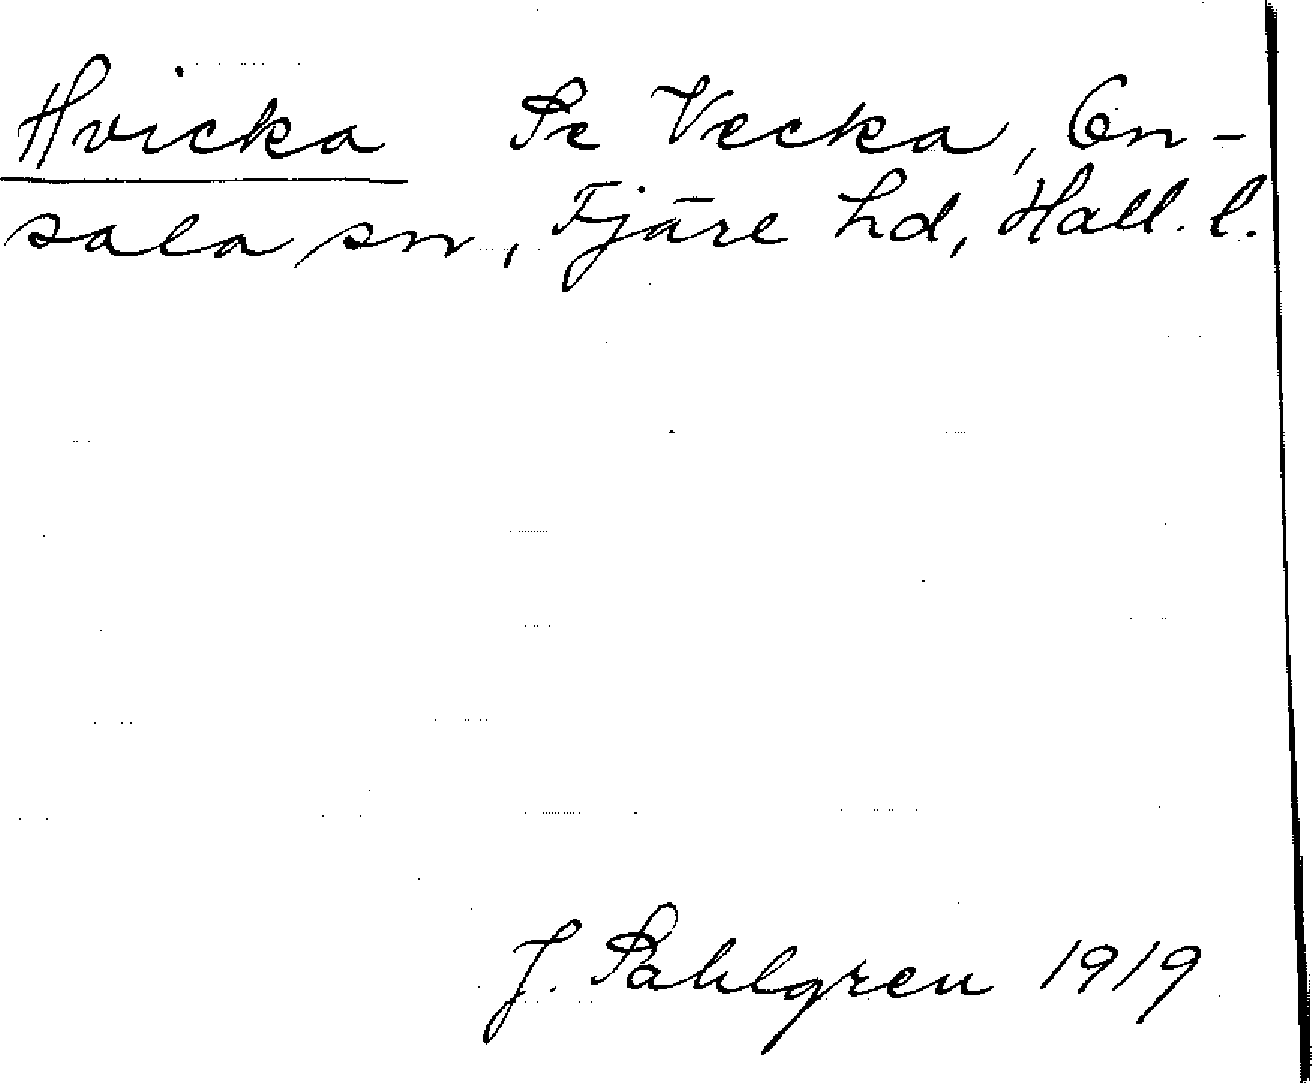 Hvicka Se Vecka, On-
sala sn, Fjäre hd, Hall. l.
J. Sahlgren 1919